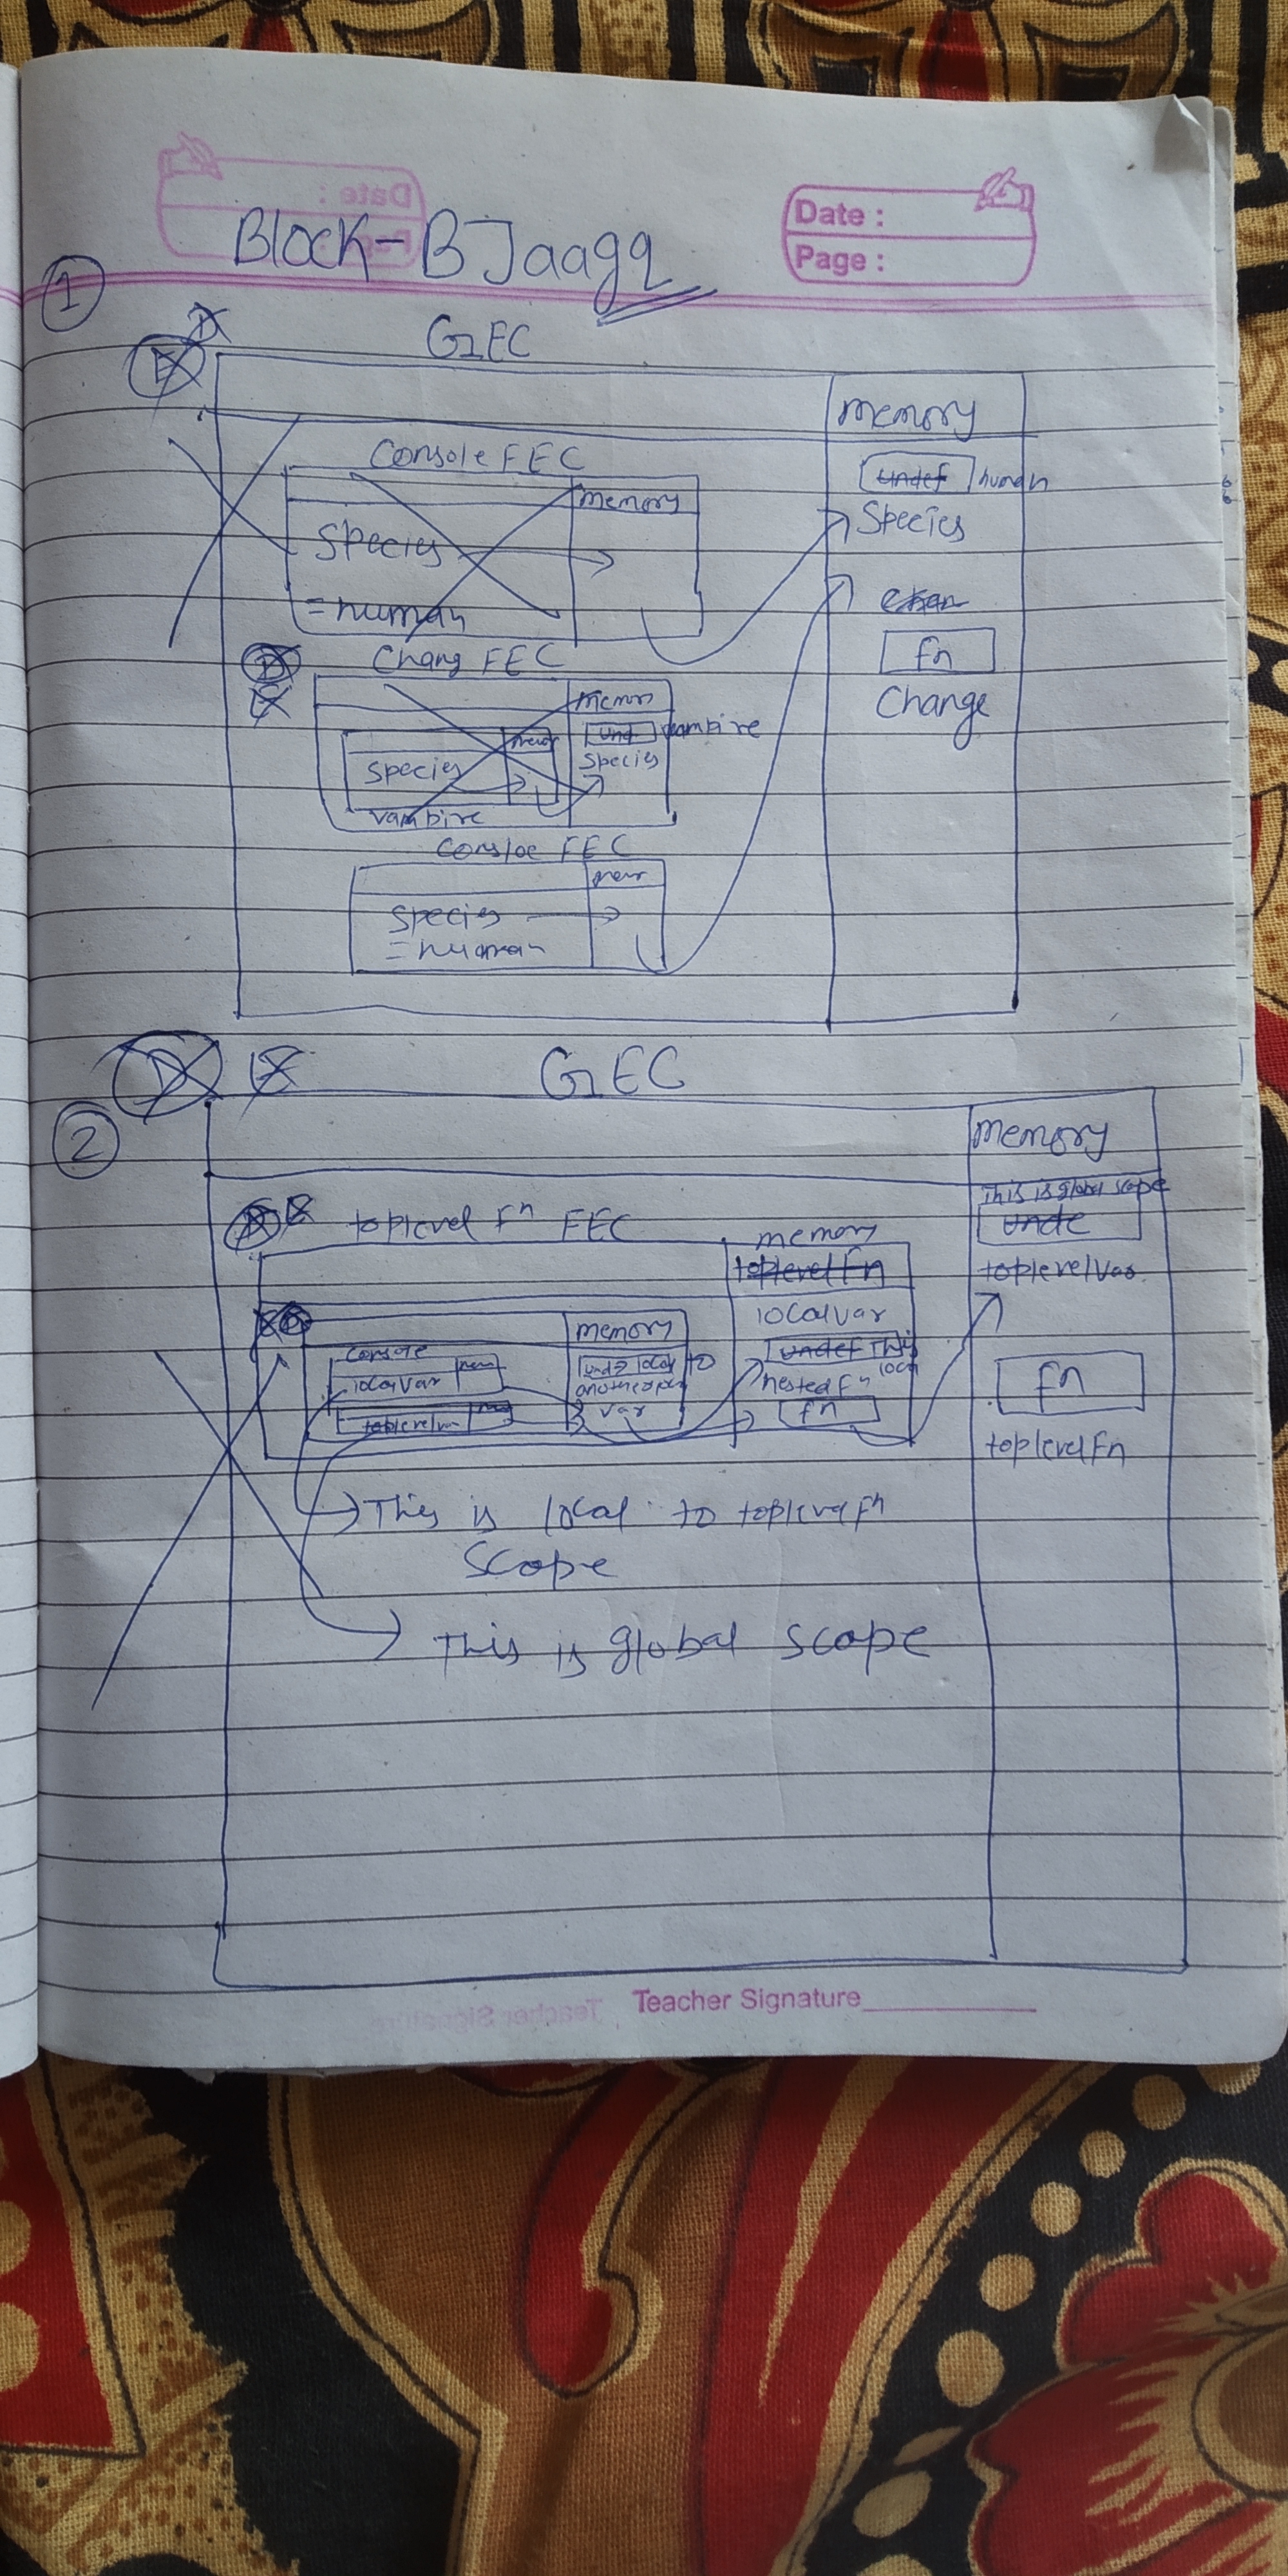 Date :
Page :
Block-B Jaagq
1
GEC
memory
undef human
Species
fn
Change
Console FEC
memory
Species
= human
D
Chang FEC
memr
und. vampire
Species
Species
vampire
Consloe FEC
mem
Species
= human
D E
GEC
2
memory
This is global scope
unde
toplevelVar
fn
toplevelFn
toplevel Fn FEC
memory
toplevelFn
localvar
undef This
local
nested Fn
fn
memory
und local to
var
Console
localVar
toplevelvar
This is local to toplevel Fn
Scope
This is global scope
Teacher Signature